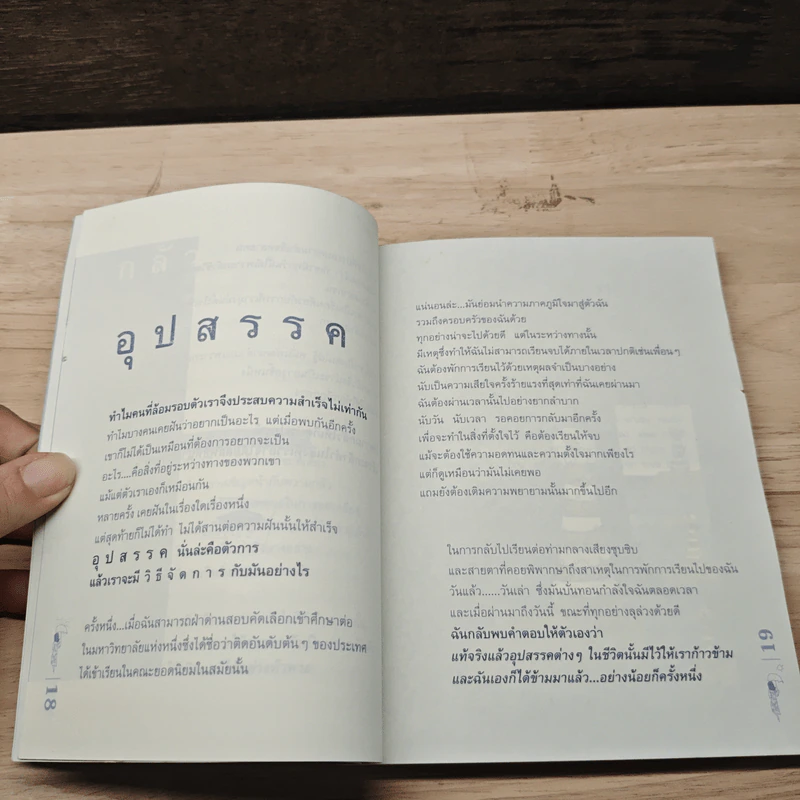 อุปสรรค
ทำไมคนที่ล้อมรอบตัวเราจึงประสบความสำเร็จไม่เท่ากัน
ทำไมบางคนเคยฝันว่าอยากเป็นอะไร แต่เมื่อพบกันอีกครั้ง
เขาก็ไม่ได้เป็นเหมือนที่ต้องการอยากจะเป็น
อะไร....คือสิ่งที่อยู่ระหว่างทางของพวกเขา
แม้แต่ตัวเราเองก็เหมือนกัน
หลายครั้ง เคยฝันในเรื่องใดเรื่องหนึ่ง
แต่สุดท้ายก็ไม่ได้ทำ ไม่ได้สานต่อความฝันนั้นให้สำเร็จ
อุปสรรค นั่นล่ะคือตัวการ
แล้วเราจะมี วิธีจัดการ กับมันอย่างไร
ครั้งหนึ่ง...เมื่อฉันสามารถฝ่าด่านสอบคัดเลือกเข้าศึกษาต่อ
ในมหาวิทยาลัยแห่งหนึ่งซึ่งได้ชื่อว่าติดอันดับต้นๆ ของประเทศ
ได้เข้าเรียนในคณะยอดนิยมในสมัยนั้น
18
แน่นอนล่ะ...มันย่อมนำความภาคภูมิใจมาสู่ตัวฉัน
รวมถึงครอบครัวของฉันด้วย
ทุกอย่างน่าจะไปด้วยดี แต่ในระหว่างทางนั้น
มีเหตุซึ่งทำให้ฉันไม่สามารถเรียนจบได้ภายในเวลาปกติเช่นเพื่อนๆ
ฉันต้องพักการเรียนไว้ด้วยเหตุผลจำเป็นบางอย่าง
นับเป็นความเสียใจครั้งร้ายแรงที่สุดเท่าที่ฉันเคยผ่านมา
ฉันต้องผ่านเวลานั้นไปอย่างยากลำบาก
นับวัน นับเวลา รอคอยการกลับมาอีกครั้ง
เพื่อจะทำในสิ่งที่ตั้งใจไว้ คือต้องเรียนให้จบ
แม้จะต้องใช้ความอดทนและความตั้งใจมากเพียงไร
แต่ก็ดูเหมือนว่ามันไม่เคยพอ
แถมยังต้องเติมความพยายามนั้นมากขึ้นไปอีก
ในการกลับไปเรียนต่อท่ามกลางเสียงซุบซิบ
และสายตาที่คอยพิพากษาถึงสาเหตุในการพักการเรียนไปของฉัน
วันแล้ว......วันเล่า ซึ่งมันบั่นทอนกำลังใจฉันตลอดเวลา
และเมื่อผ่านมาถึงวันนี้ ขณะที่ทุกอย่างลุล่วงด้วยดี
ฉันกลับพบคำตอบให้ตัวเองว่า
แท้จริงแล้วอุปสรรคต่างๆ ในชีวิตนั้นมีไว้ให้เราก้าวข้าม
และฉันเองก็ได้ข้ามมาแล้ว...อย่างน้อยก็ครั้งหนึ่ง
19